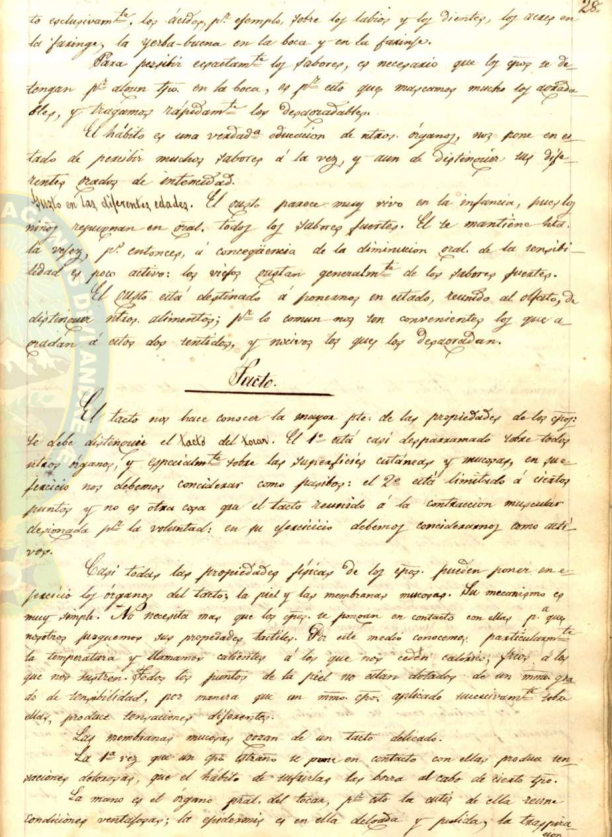 28.
to esclusivamte, los ácidos, pr. ejemplo, sobre los labios y los dientes, los acres en
la faringe, la yerba-buena en la boca y en la farinse.
Para persibir esactamte los sabores, es necesario que los cpos. se de-
tengan pr. algun tpo. en la boca, es pr. esto que mascamos mucho los agrada-
bles, y tragamos rapidamte los desagradables.
El hábito es una verdada. educacion de ntros. órganos, nos pone en es-
tado de persibir muchos sabores á la vez, y aun de distinguir sus dife-
rentes grados de intensidad.
Gusto en las diferentes edades. El gusto parece muy vivo en la infancia, pues los
niños repugnan en gral. todos los sabores fuertes. El se mantiene hta.
la vejez, pr. entonces, á conseqüencia de la diminucion gral. de la sensibi-
lidad es poco activo: los viejos gustan generalmte de los sabores fuertes.
El gusto está destinado á ponernos en estado, reunido al olfato, de
distinguir ntros. alimentos; pr. lo comun nos son convenientes los que a-
gradan á estos dos sentidos, y nocivos los que los desagradan.
Tacto.
El tacto nos hace conocer la mayor pte. de las propiedades de los cpos.
Se debe distinguir el tacto del tocar. El 1º está casi desparramado sobre todos
ntros órganos, y especialmte sobre las superficies cutáneas y mucosas, en su e-
jercicio nos debemos considerar como pasibos: el 2º está limitado á ciertos
puntos y no es otra cosa que el tacto reunido á la contraccion muscular
desionada pr. la voluntad: en su ejercicicio debemos considerarnos como acti-
vos.
Casi todas las propiedades físicas de los cpos. pueden poner en e-
jercicio los órganos del tacto; la piel y las membranas mucosas. Su mecanismo es
muy simple. No necesita mas que los cpos. se pongan en contacto con ellas pa. que
nosotros juzguemos sus propiedades tactiles. Por este medio conocemos particularmte
la temperatura y llamamos calientes á los que nos ceden calório, frios á los
que nos sustren. Todos los puntos de la piel no estan dotados de un mmo gra-
do de sensibilidad, por manera que un mmo cpo. aplicado sucecivamte sobre
ellas, produce sensaciones diferentes.
Las membranas mucosas gozan de un tacto delicado.
La 1ª vez que un cpo estraño se pone en contacto con ellas produce sen-
saciones dolorosas, que el hábito de sufrirlas las borra al cabo de cierto tpo.
La mano es el órgano pral. del tocar, pr. esto la cutis de ella reune
condiciones ventajosas; la epidermis es en ella delgada y pulida; la traspira-
cion